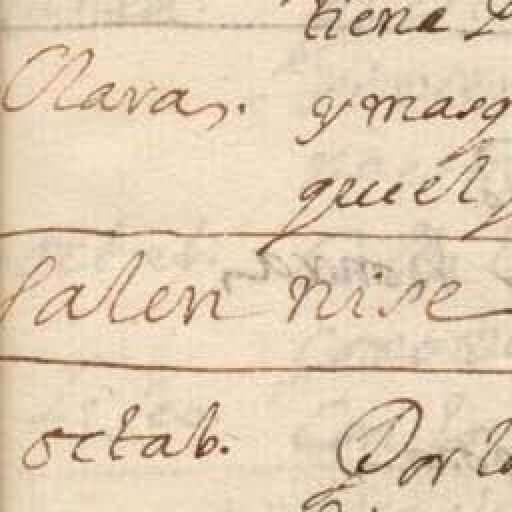 tiene
Clara. y mas q
que el
salen nise
octab. Por lo